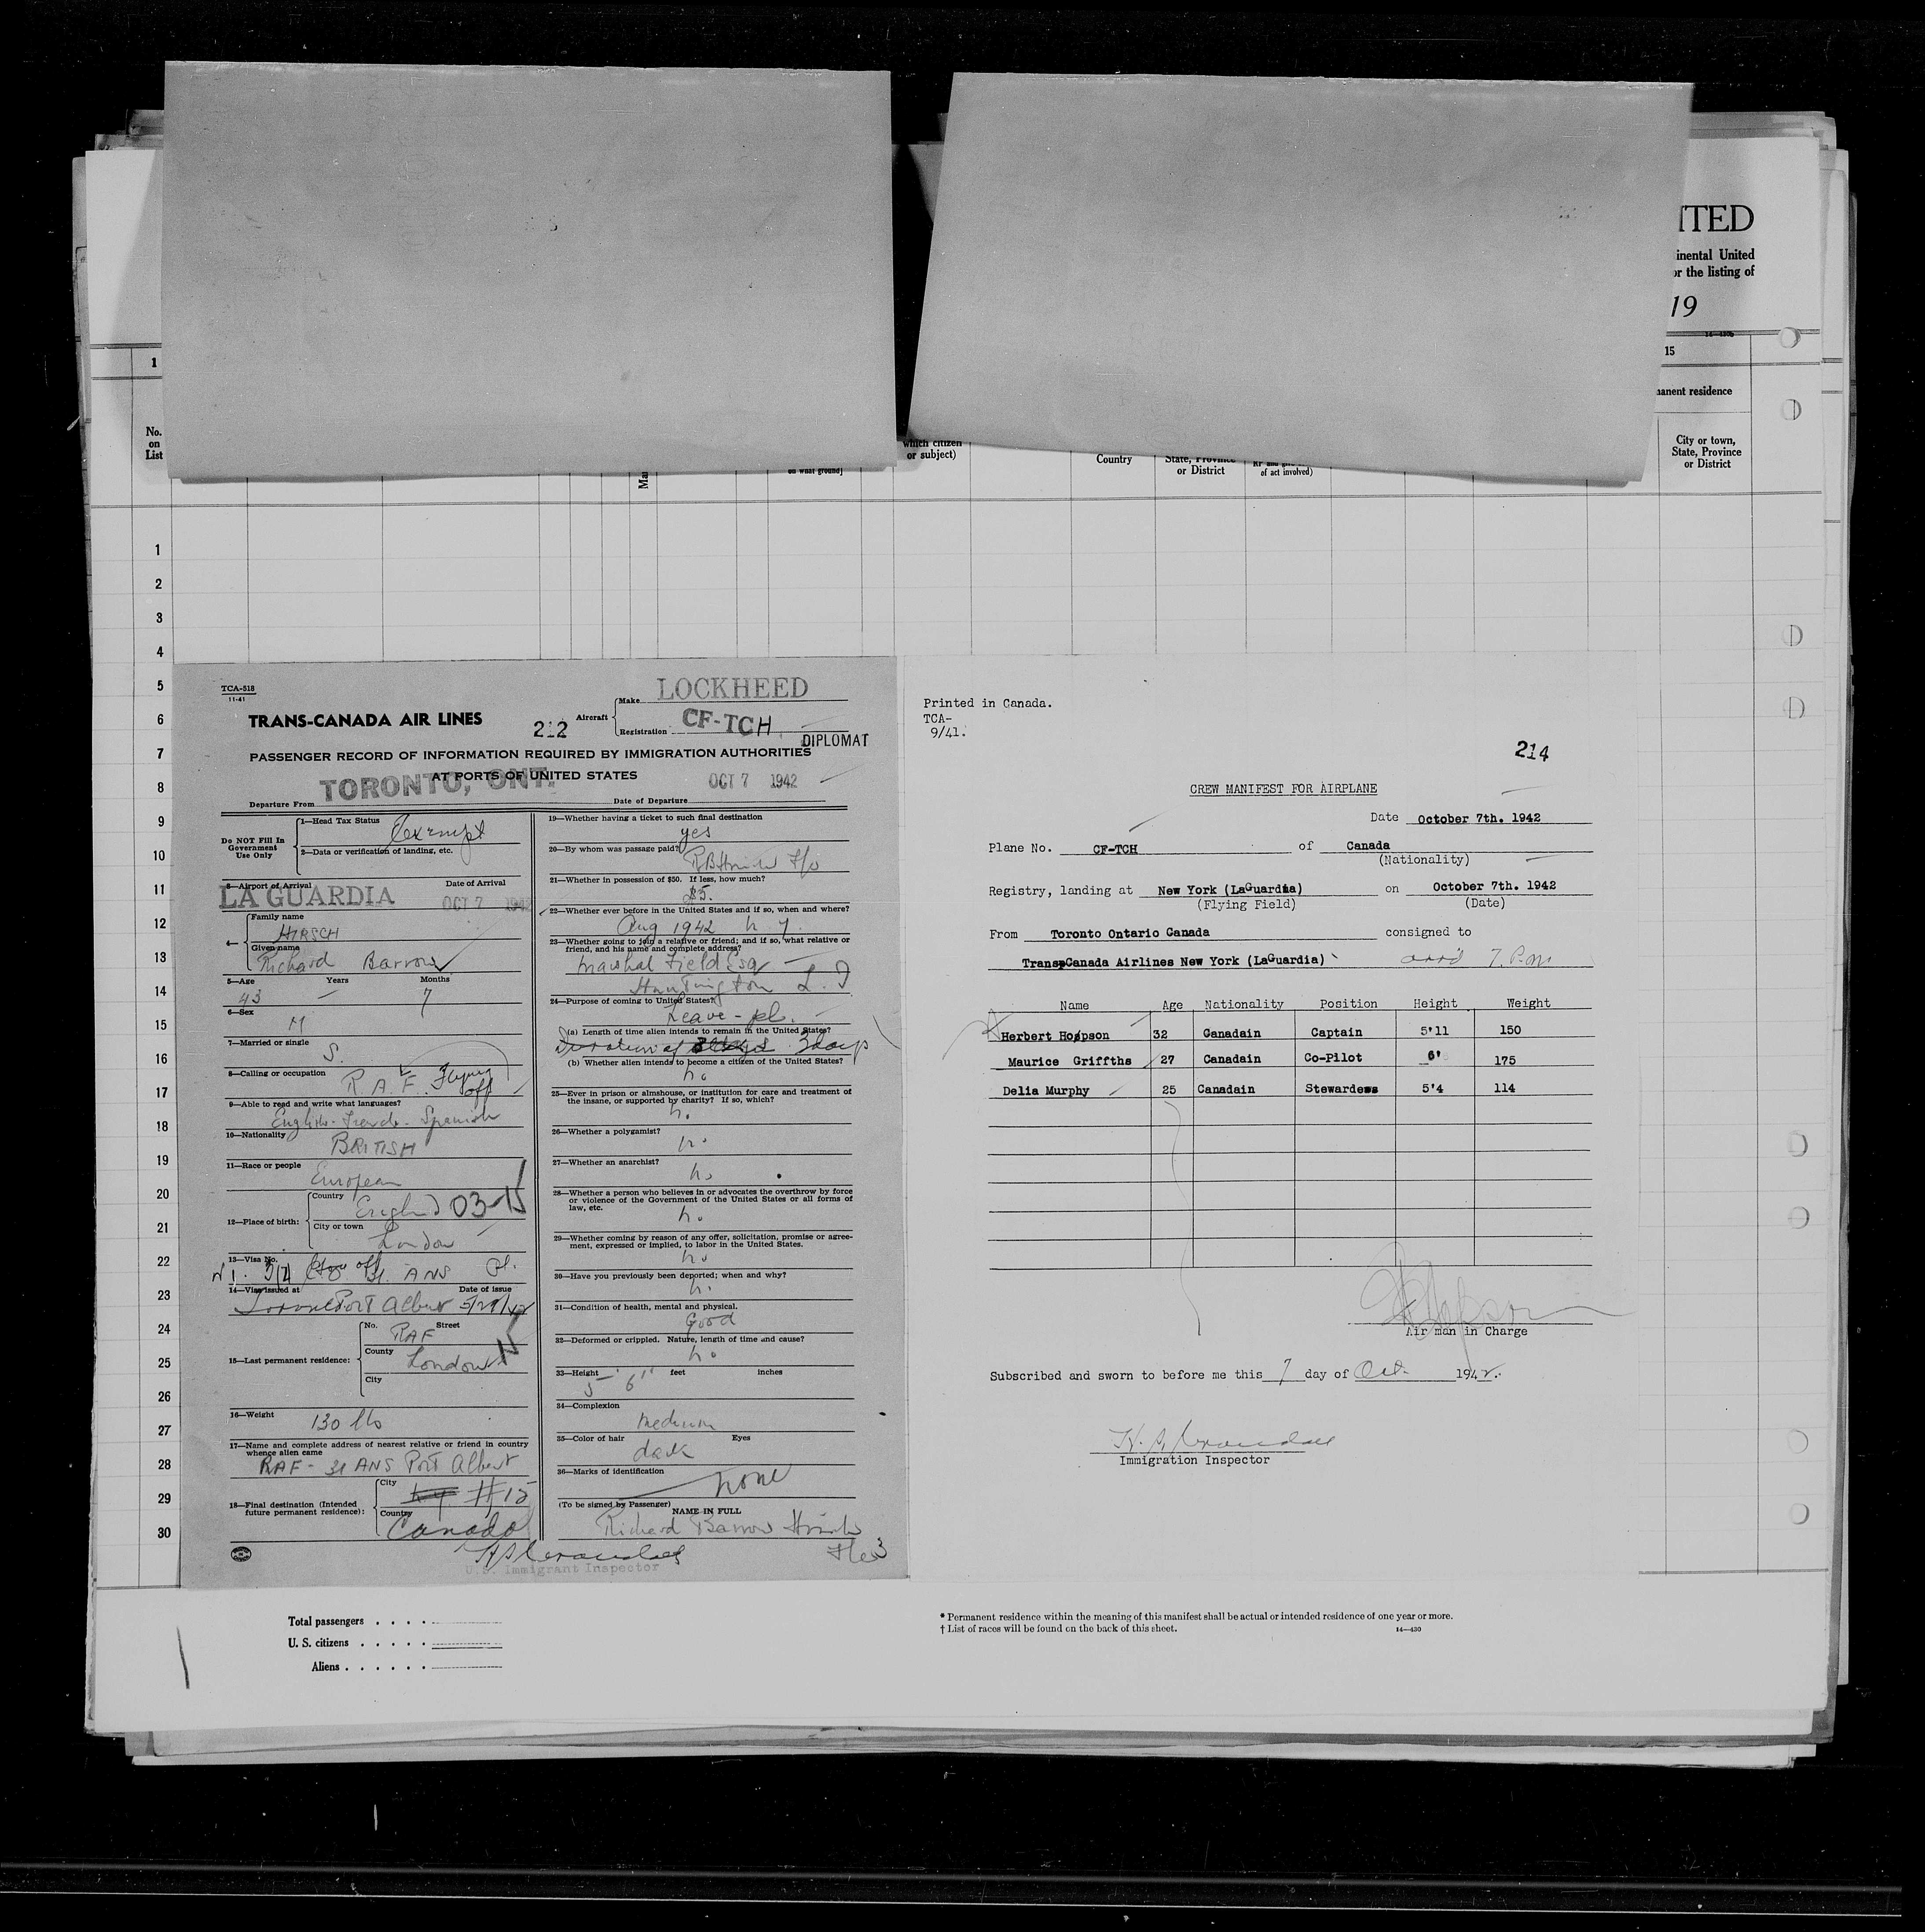 ITED
inental United
or the listing of
19
1
15
anent residence
No.
on
List
which citizen
or subject)
on what ground]
Country
State, Province
or District
of act involved)
City or town,
State, Province
or District
1
2
3
4
5
6
7
8
9
10
11
12
13
14
15
16
17
18
19
20
21
22
23
24
25
26
27
28
29
30
TCA-518
11-41
TRANS-CANADA AIR LINES
212
Aircraft
Make LOCKHEED
Registration CF-TCH
DIPLOMAT
PASSENGER RECORD OF INFORMATION REQUIRED BY IMMIGRATION AUTHORITIES
AT PORTS OF UNITED STATES
Departure From TORONTO, ONT.
Date of Departure OCT 7 1942
Do NOT Fill In
Government
Use Only
1—Head Tax Status Exempt
2—Data or verification of landing, etc.
3—Airport of Arrival LA GUARDIA
Date of Arrival OCT 7 1942
4—
Family name
HIRSCH
Given name
Richard Barrow
5—Age Years Months
43 7
6—Sex
M
7—Married or single
S.
8—Calling or occupation R.A.F. Flying off
9—Able to read and write what languages?
English - French - Spanish
10—Nationality
BRITISH
11—Race or people
European
12—Place of birth:
Country
England 03-15
City or town
London
13—Visa No.
14—Visa issued at Date of issue
Port Albert
15—Last permanent residence:
No. Street
RAF
County
London
City
16—Weight
130 lbs
17—Name and complete address of nearest relative or friend in country
whence alien came
RAF - 31 ANS Port Albert
18—Final destination (Intended
future permanent residence):
City
#15
Country
Canada
U.S. Immigrant Inspector
19—Whether having a ticket to such final destination
yes
20—By whom was passage paid?
RBHirsch F/o
21—Whether in possession of $50. If less, how much?
$5.
22—Whether ever before in the United States and if so, when and where?
Aug 1942 n.y.
23—Whether going to join a relative or friend; and if so, what relative or
friend, and his name and complete address?
Marshal Field Esq
Huntington L. I
24—Purpose of coming to United States?
Leave - pl.
(a) Length of time alien intends to remain in the United States?
3 days
(b) Whether alien intends to become a citizen of the United States?
no
25—Ever in prison or almshouse, or institution for care and treatment of
the insane, or supported by charity? If so, which?
no
26—Whether a polygamist?
no
27—Whether an anarchist?
no
28—Whether a person who believes in or advocates the overthrow by force
or violence of the Government of the United States or all forms of
law, etc.
no
29—Whether coming by reason of any offer, solicitation, promise or agree-
ment, expressed or implied, to labor in the United States.
no
30—Have you previously been deported; when and why?
no
31—Condition of health, mental and physical.
Good
32—Deformed or crippled. Nature, length of time and cause?
no
33—Height feet inches
5 6"
34—Complexion
medium
35—Color of hair Eyes
dark
36—Marks of identification
none
(To be signed by Passenger)
NAME IN FULL
Richard Barrow Hirsch
Printed in Canada.
TCA-
9/41.
214
CREW MANIFEST FOR AIRPLANE
Date October 7th. 1942
Plane No. CF-TCH of Canada
(Nationality)
Registry, landing at New York (LaGuardia) on October 7th. 1942
(Flying Field) (Date)
From Toronto Ontario Canada consigned to
Trans-Canada Airlines New York (LaGuardia) arrd 7. P.m
Name Age Nationality Position Height Weight
Herbert Hopson 32 Canadain Captain 5'11 150
Maurice Griffths 27 Canadain Co-Pilot 6' 175
Delia Murphy 25 Canadain Stewardess 5'4 114
Air man in Charge
Subscribed and sworn to before me this 7 day of Oct. 1942.
Immigration Inspector
Total passengers
U. S. citizens
Aliens
* Permanent residence within the meaning of this manifest shall be actual or intended residence of one year or more.
† List of races will be found on the back of this sheet.
14—430